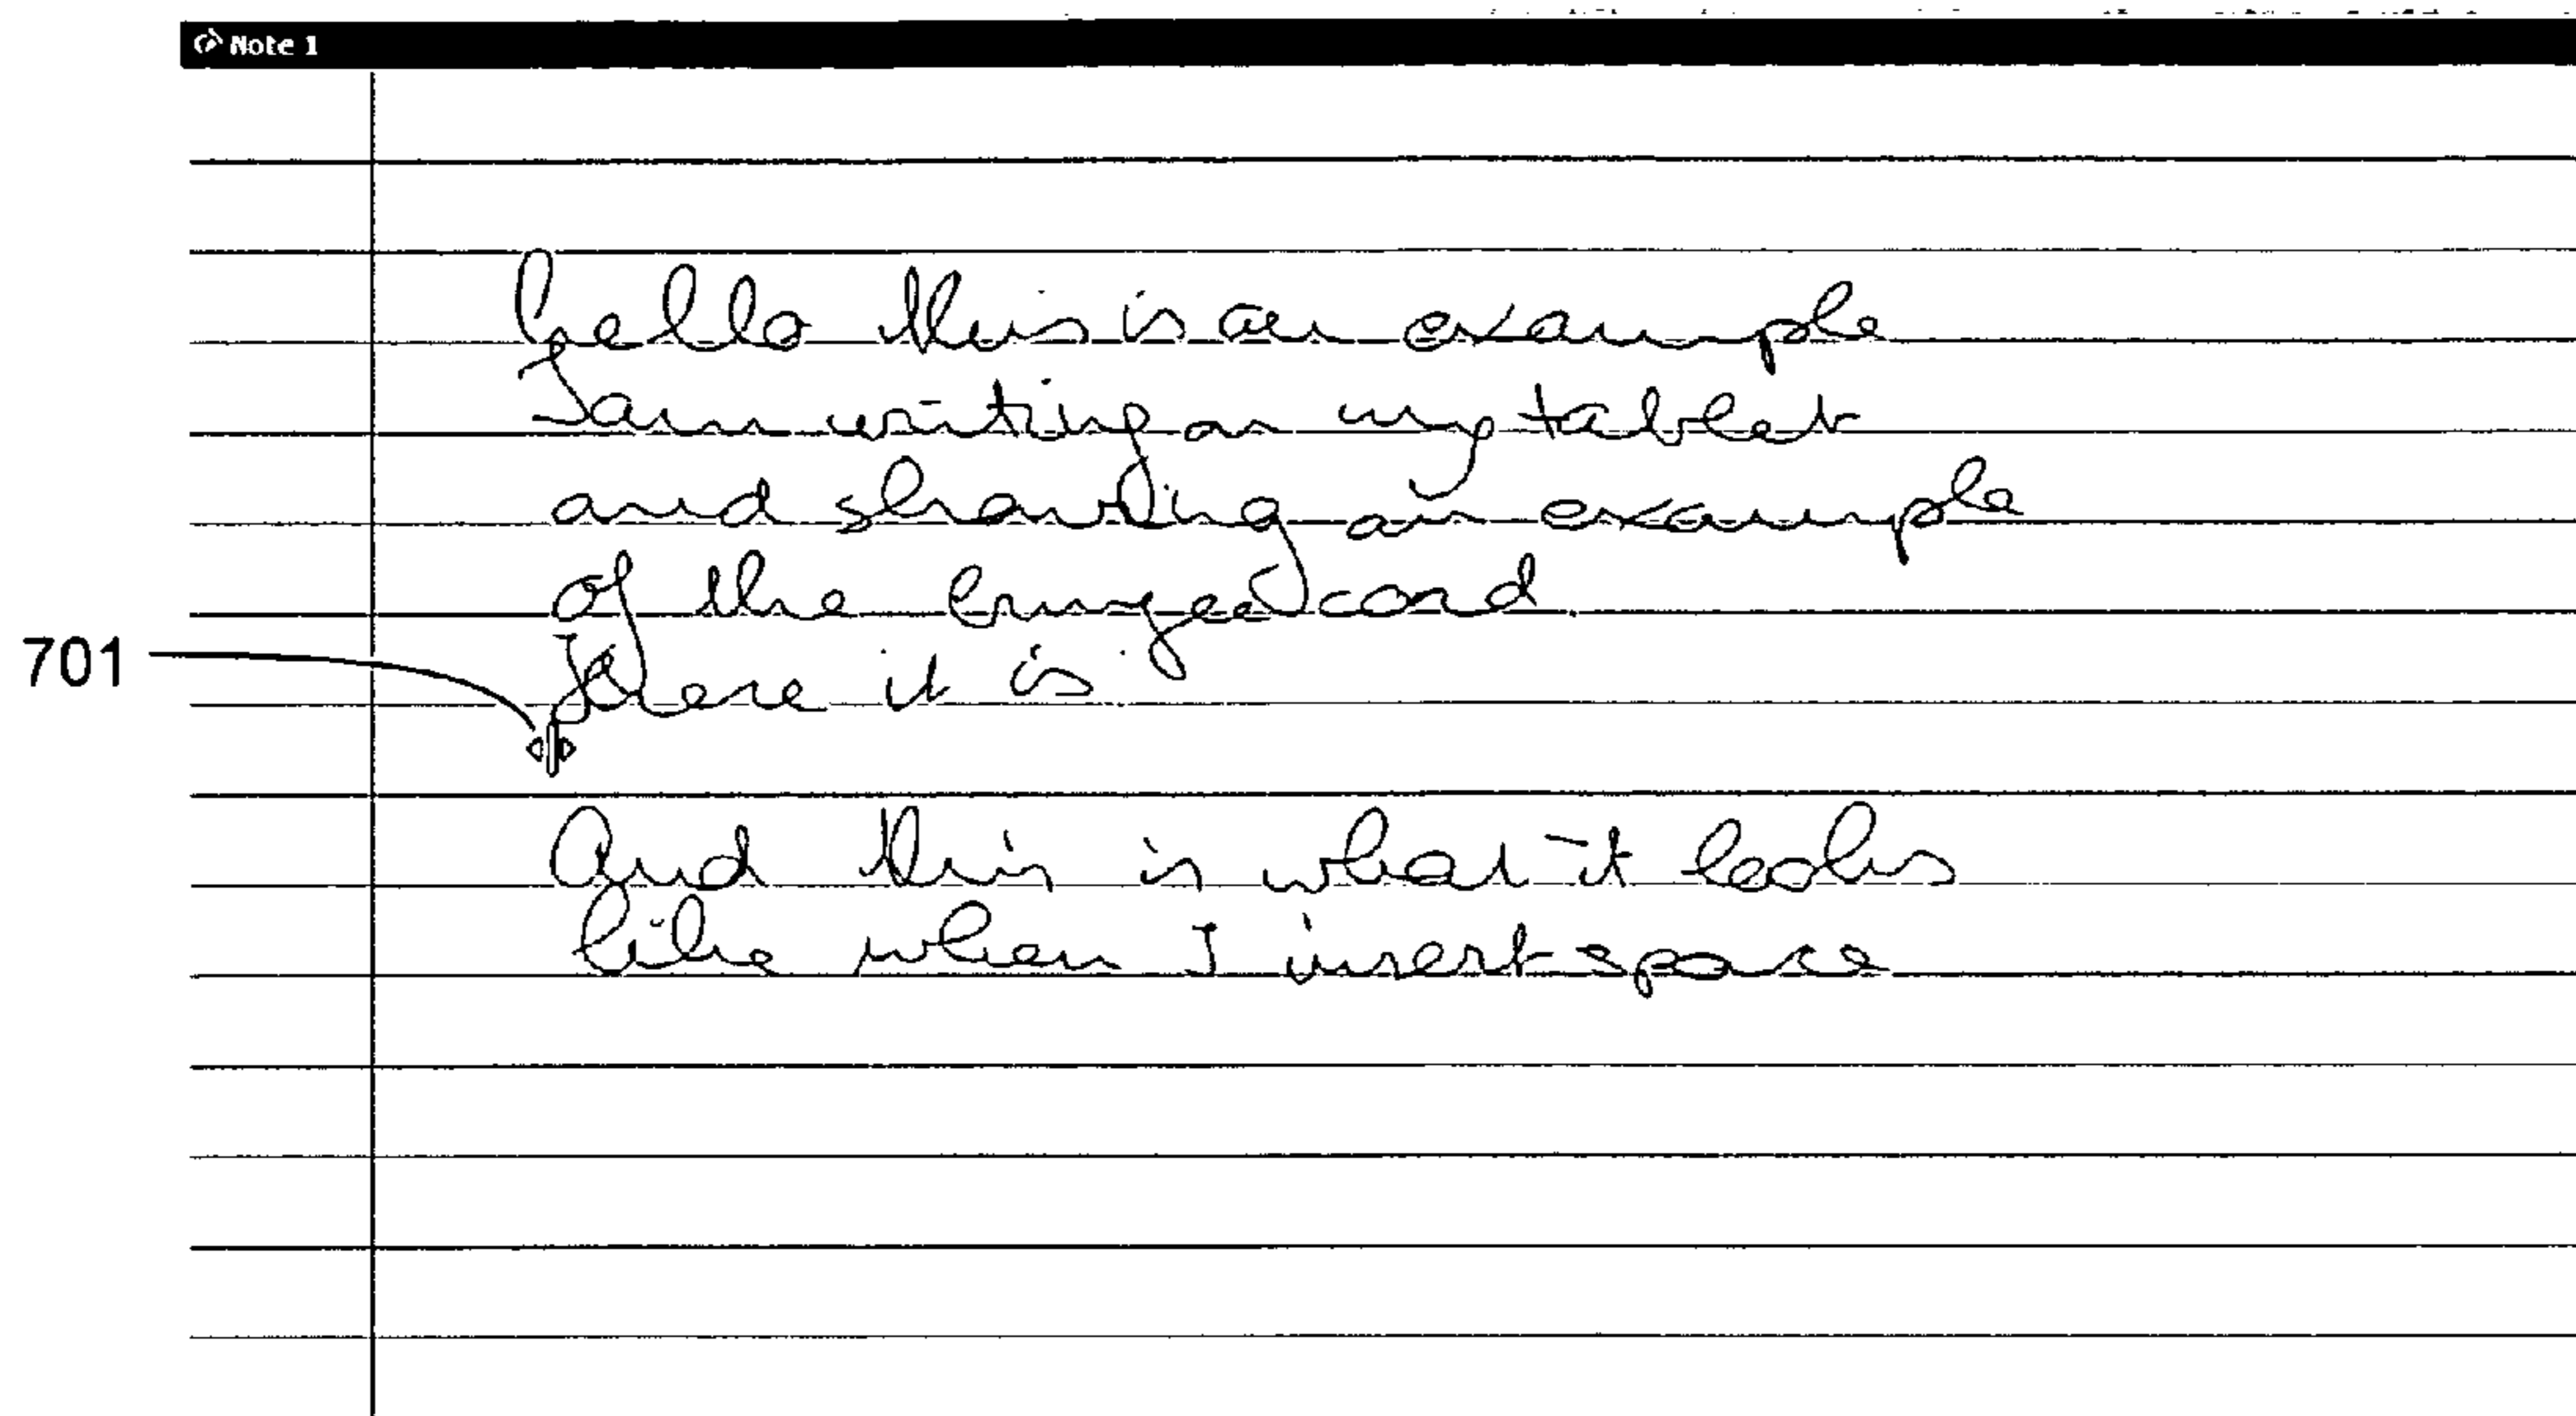 Note 1
hello this is an example
I am writing on my tablet
and showing an example
of the bungee cord
Here it is
701
And this is what it looks
like when I insert space